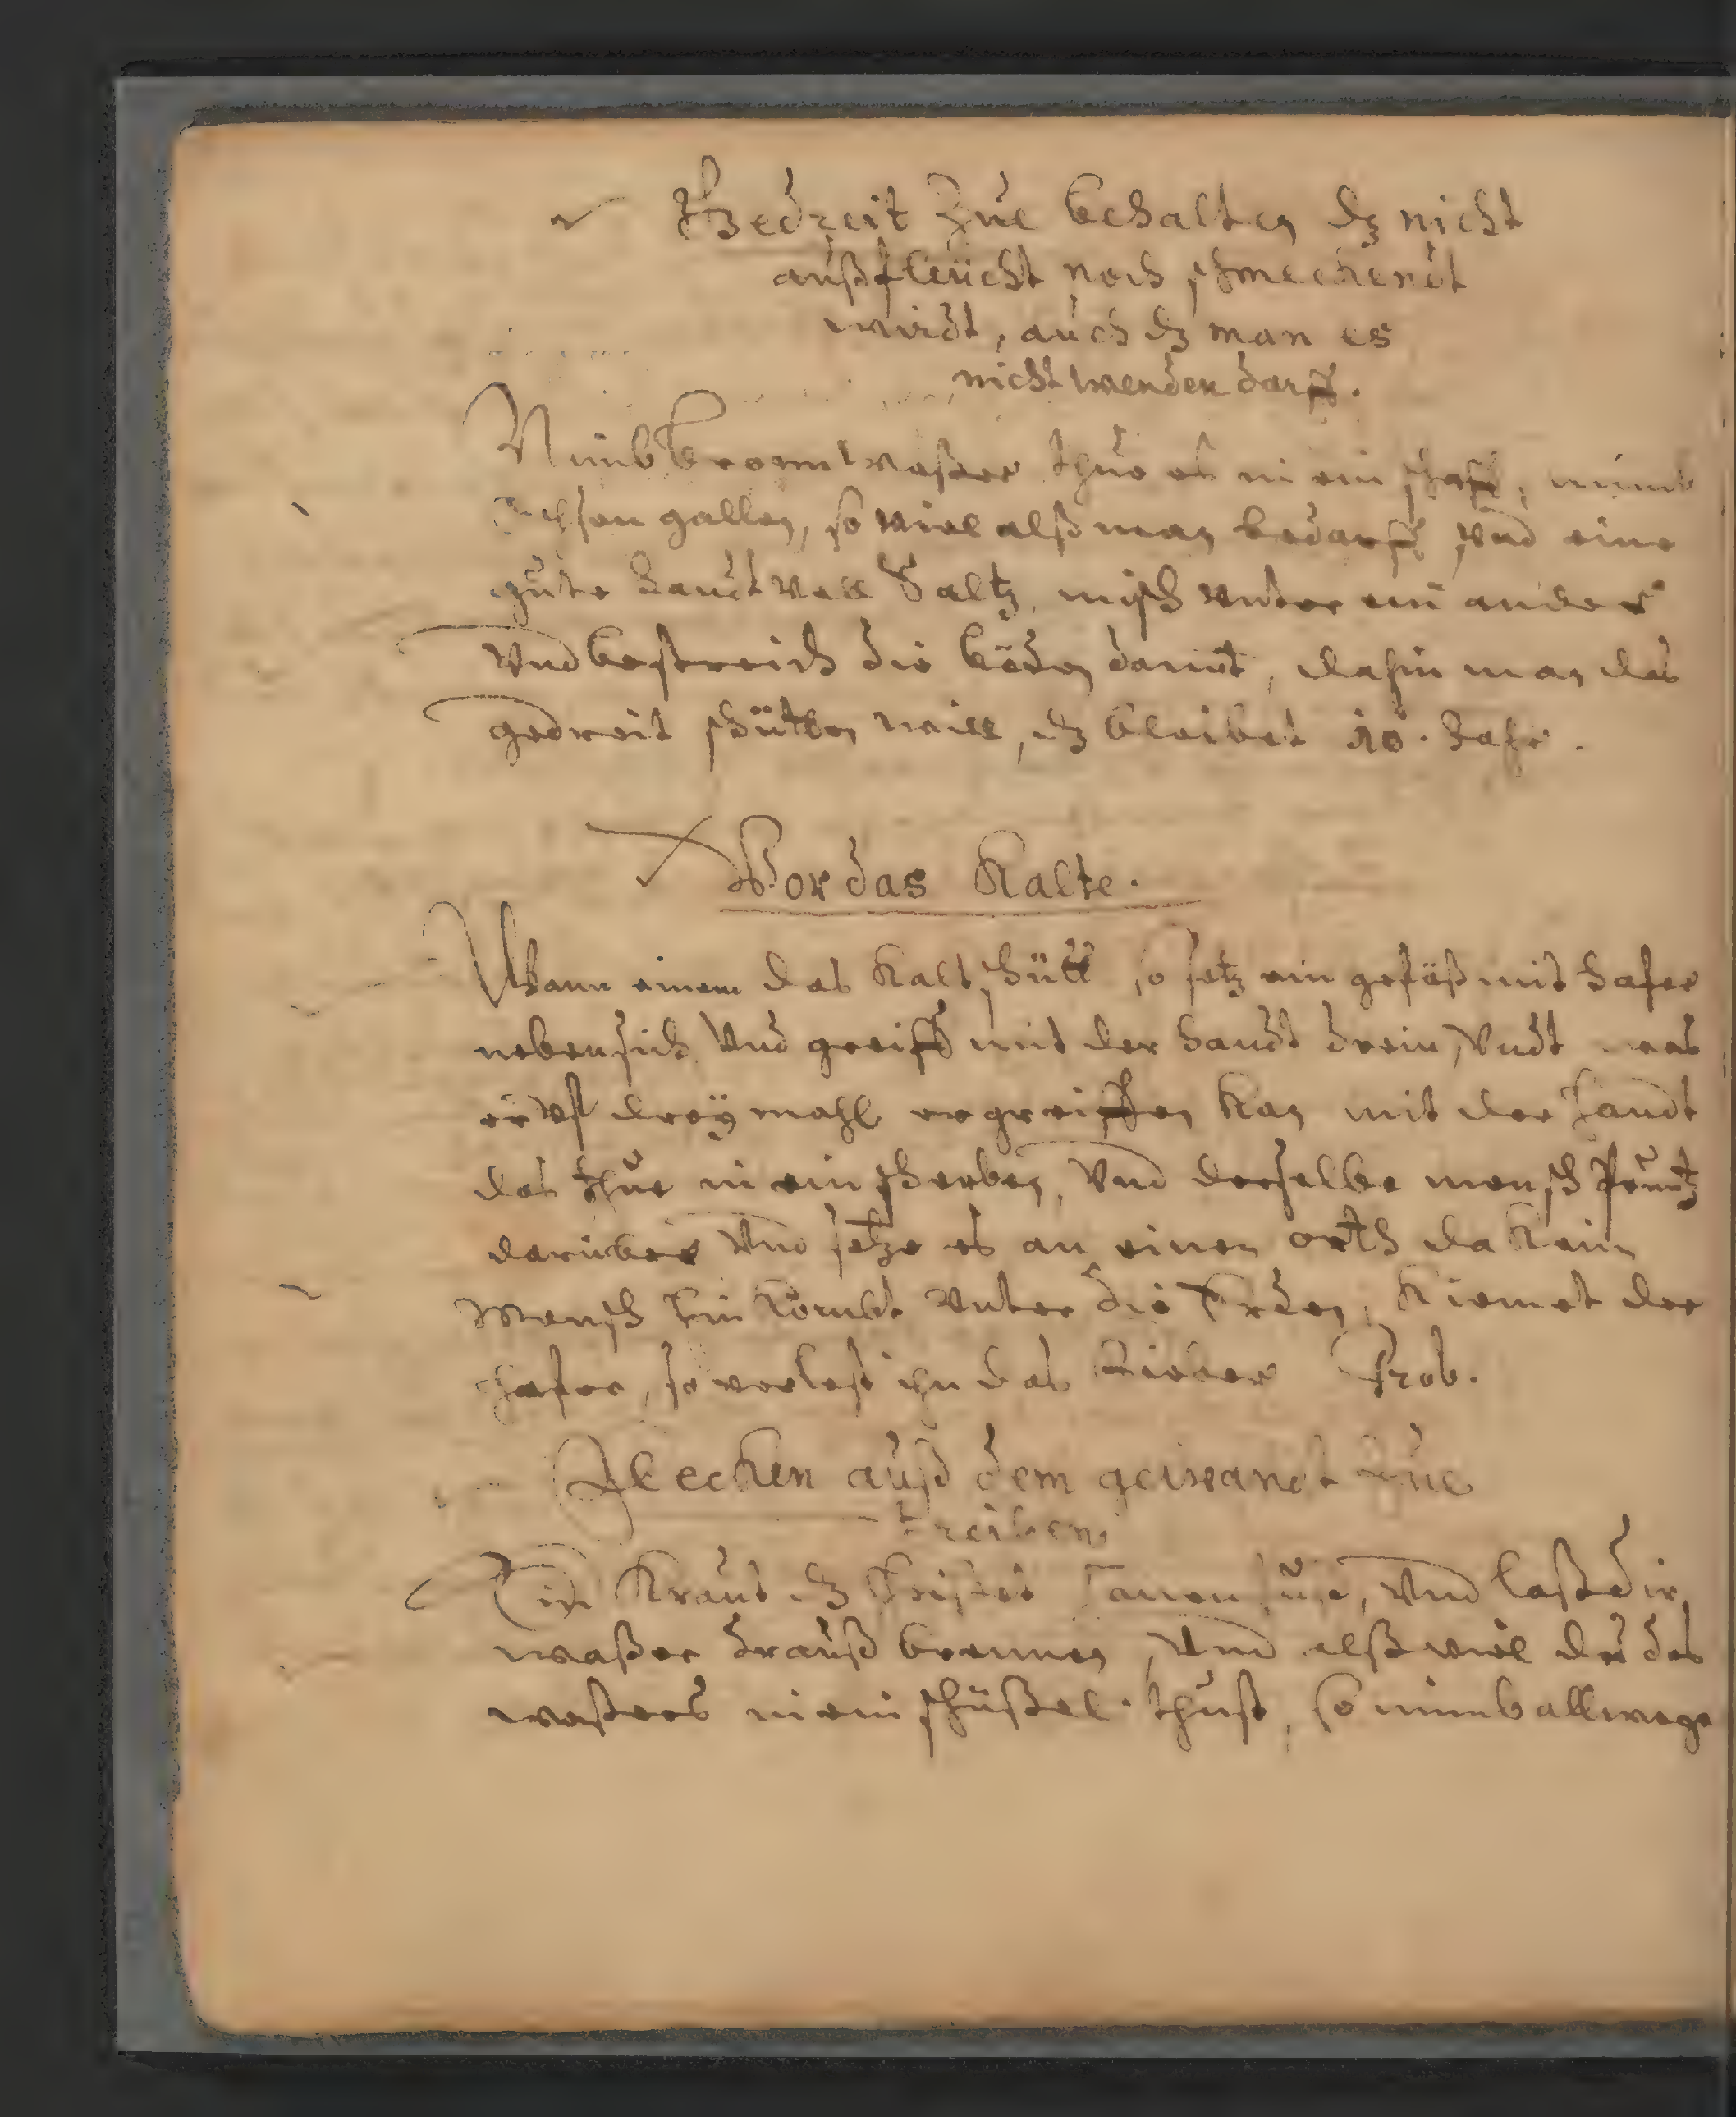 Gedreit Zue behalten dz nicht
außfleücht noch schmeckendt
wirdt, auch dz man es
nicht wenden darff.
Nimb bronnwaßer thue es in ein schaff, nimb
Ochsen gallen, so viel alß man bedarff vnd eine
gute handt voll Saltz, misch vnter ein ander
vnd bestreich die böden damit, dahin man das
gedreit schütten will, dz bleibet 10. Jahr.
Vor das Kalte.
Wann einem das Kalt schütt, so setz ein gefäß mit hafer
neben sich vnd greiff mit der handt drein, vndt was
er vf dreÿ mahl ergreiffen kan mit der handt
das thue in ein scherben, vnd derselbe mensch Pruntz
darüber vnd setze es an einen orth da kein
mensch hin kombt vnter die Erden, Kiemet der
hafer, so verlest ihn das Fieber Prob.
Flecken auß dem gewandt Zue
treiben
Ein Kraut dz heiset vnd laße dir
waßer drauß brennen, vnd alß viel du des
waßers in ein schüßel thust, so nimb allwege